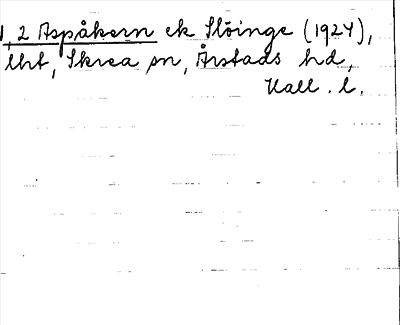 1, 2 Aspåkern ek Slöinge (1924),
lht, Skrea sn, Årstads hd,
Hall. l.